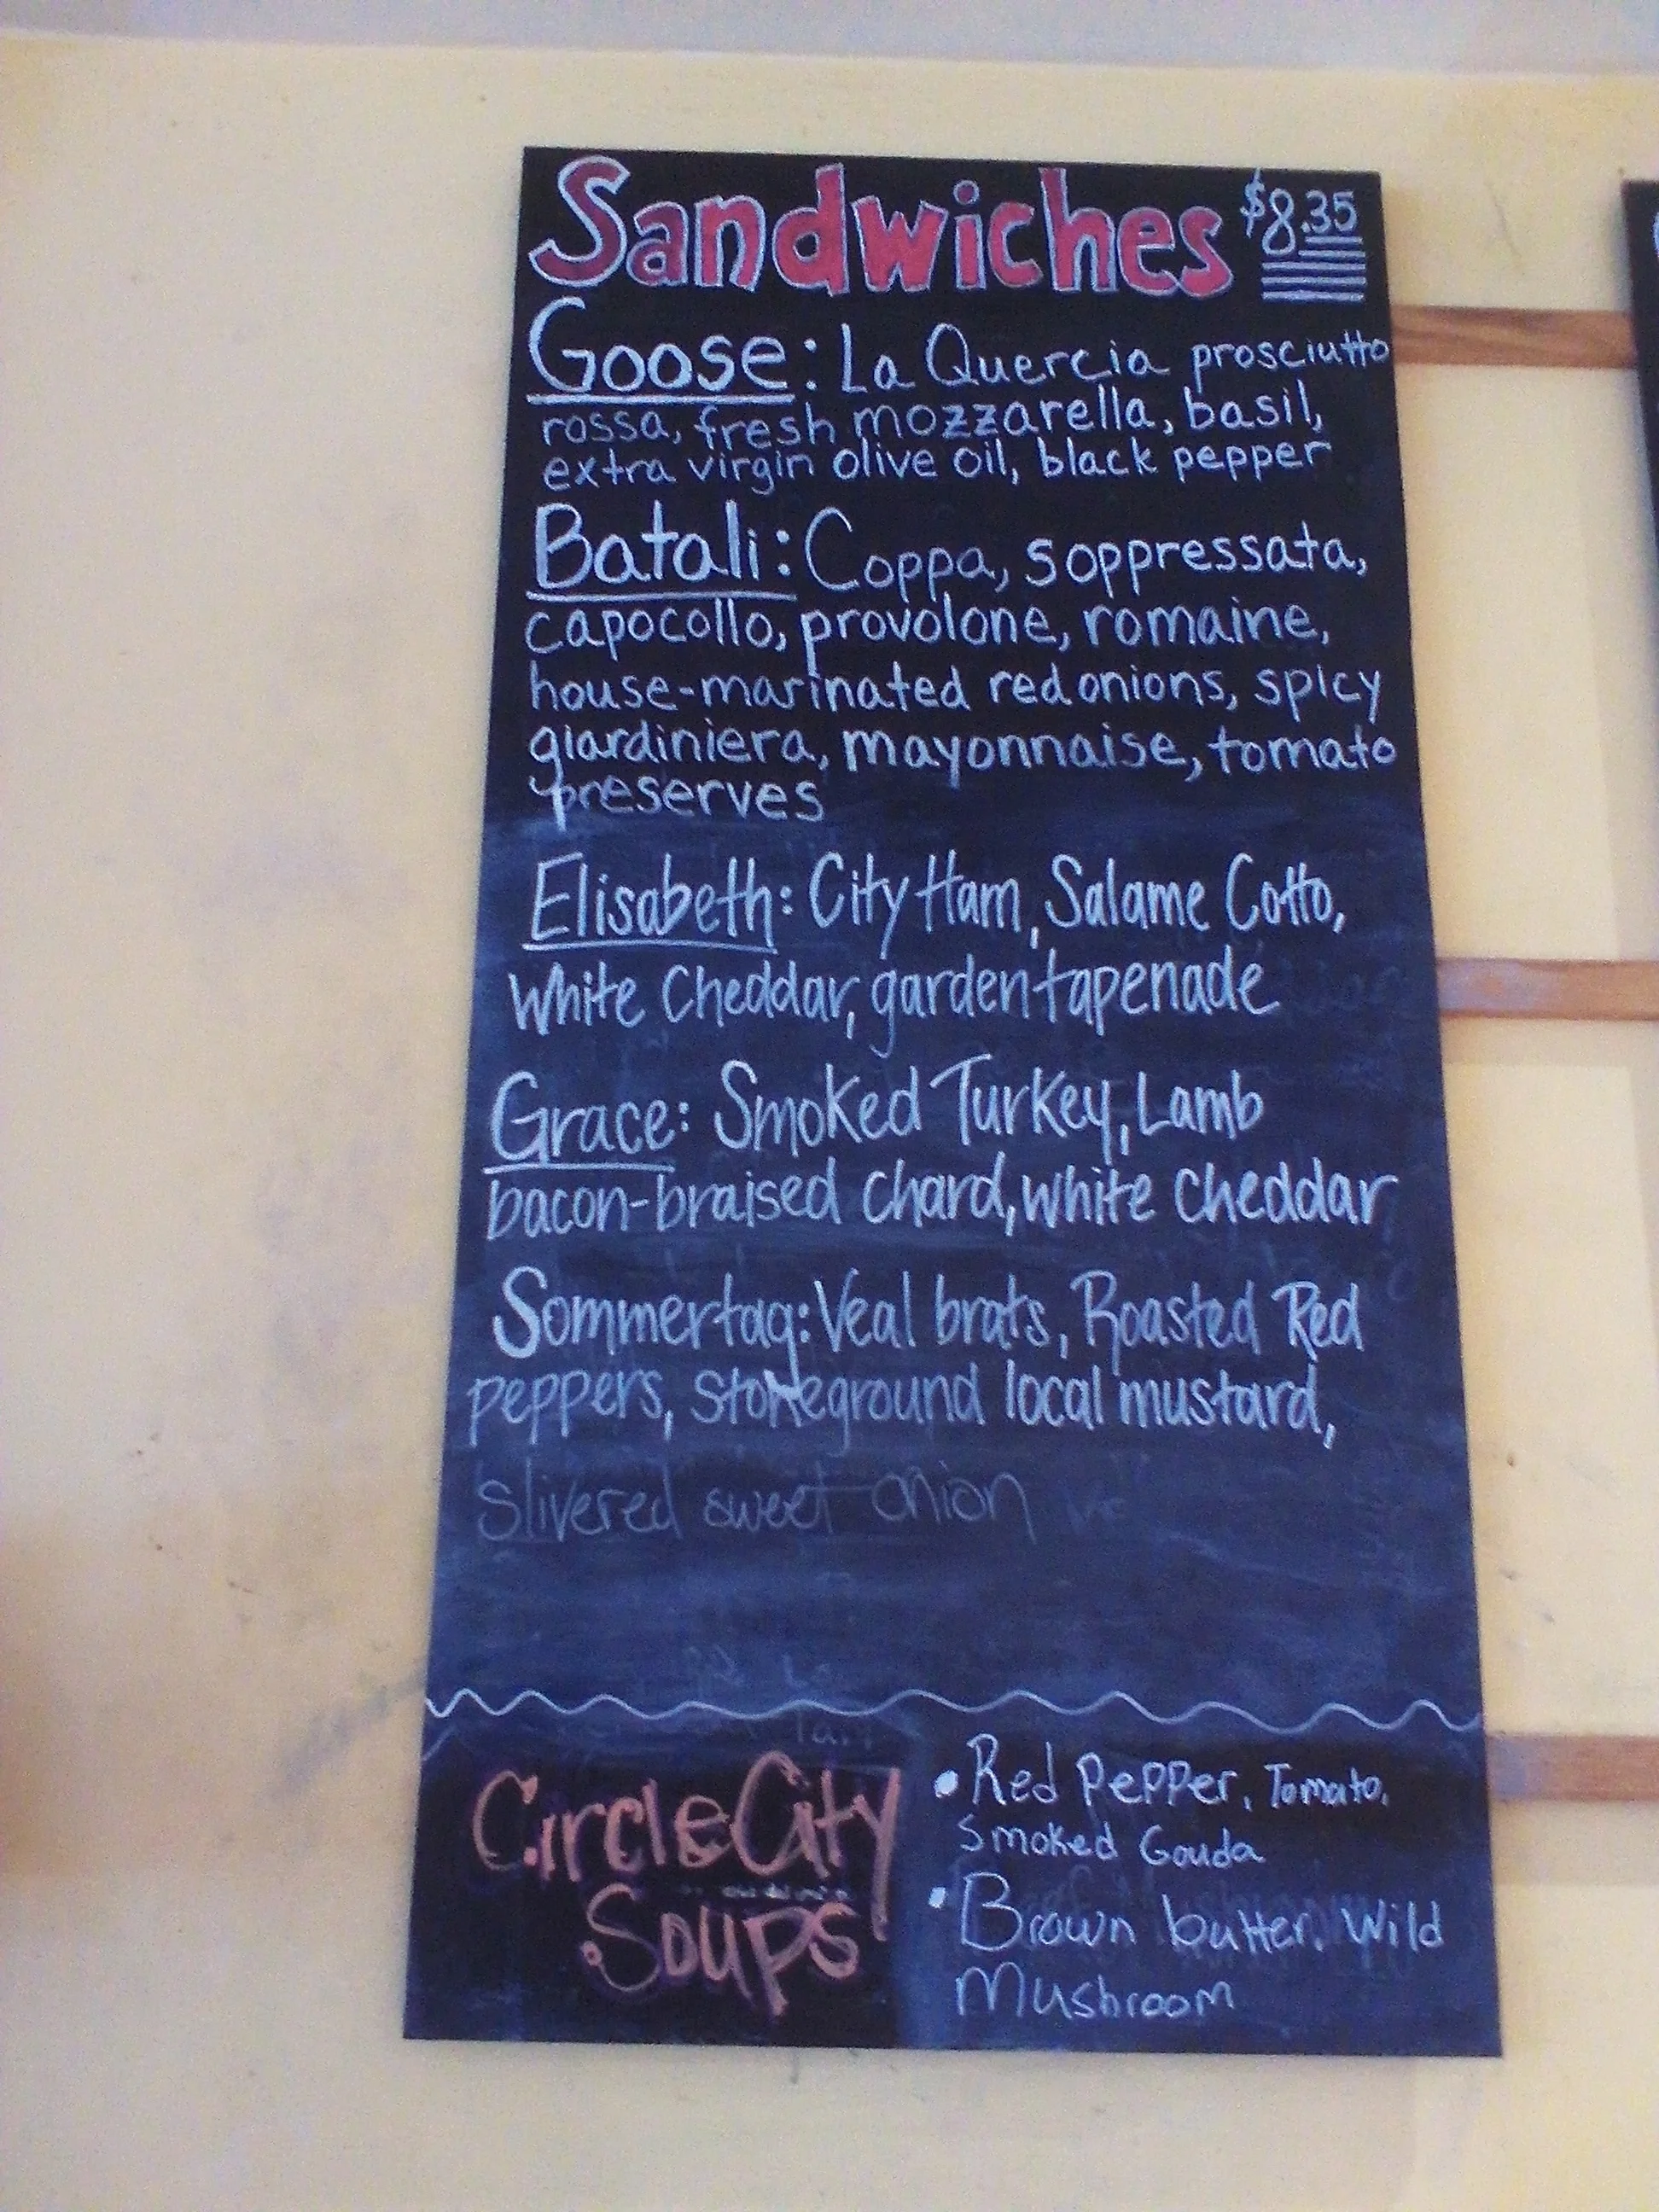 Sandwiches $8.35
Goose: La Quercia prosciutto
rossa, fresh mozzarella, basil,
extra virgin olive oil, black pepper
Batali: Coppa, soppressata,
capocollo, provolone, romaine,
house-marinated red onions, spicy
giardiniera, mayonnaise, tomato
preserves
Elisabeth: City Ham, Salame Cotto,
White Cheddar, garden tapenade
Grace: Smoked Turkey, Lamb
bacon-braised chard, white cheddar
Sommertag: Veal brats, Roasted Red
peppers, stoneground local mustard,
slivered sweet onion
Circle City
Soups
• Red Pepper, Tomato,
Smoked Gouda
• Brown butter, Wild
Mushroom